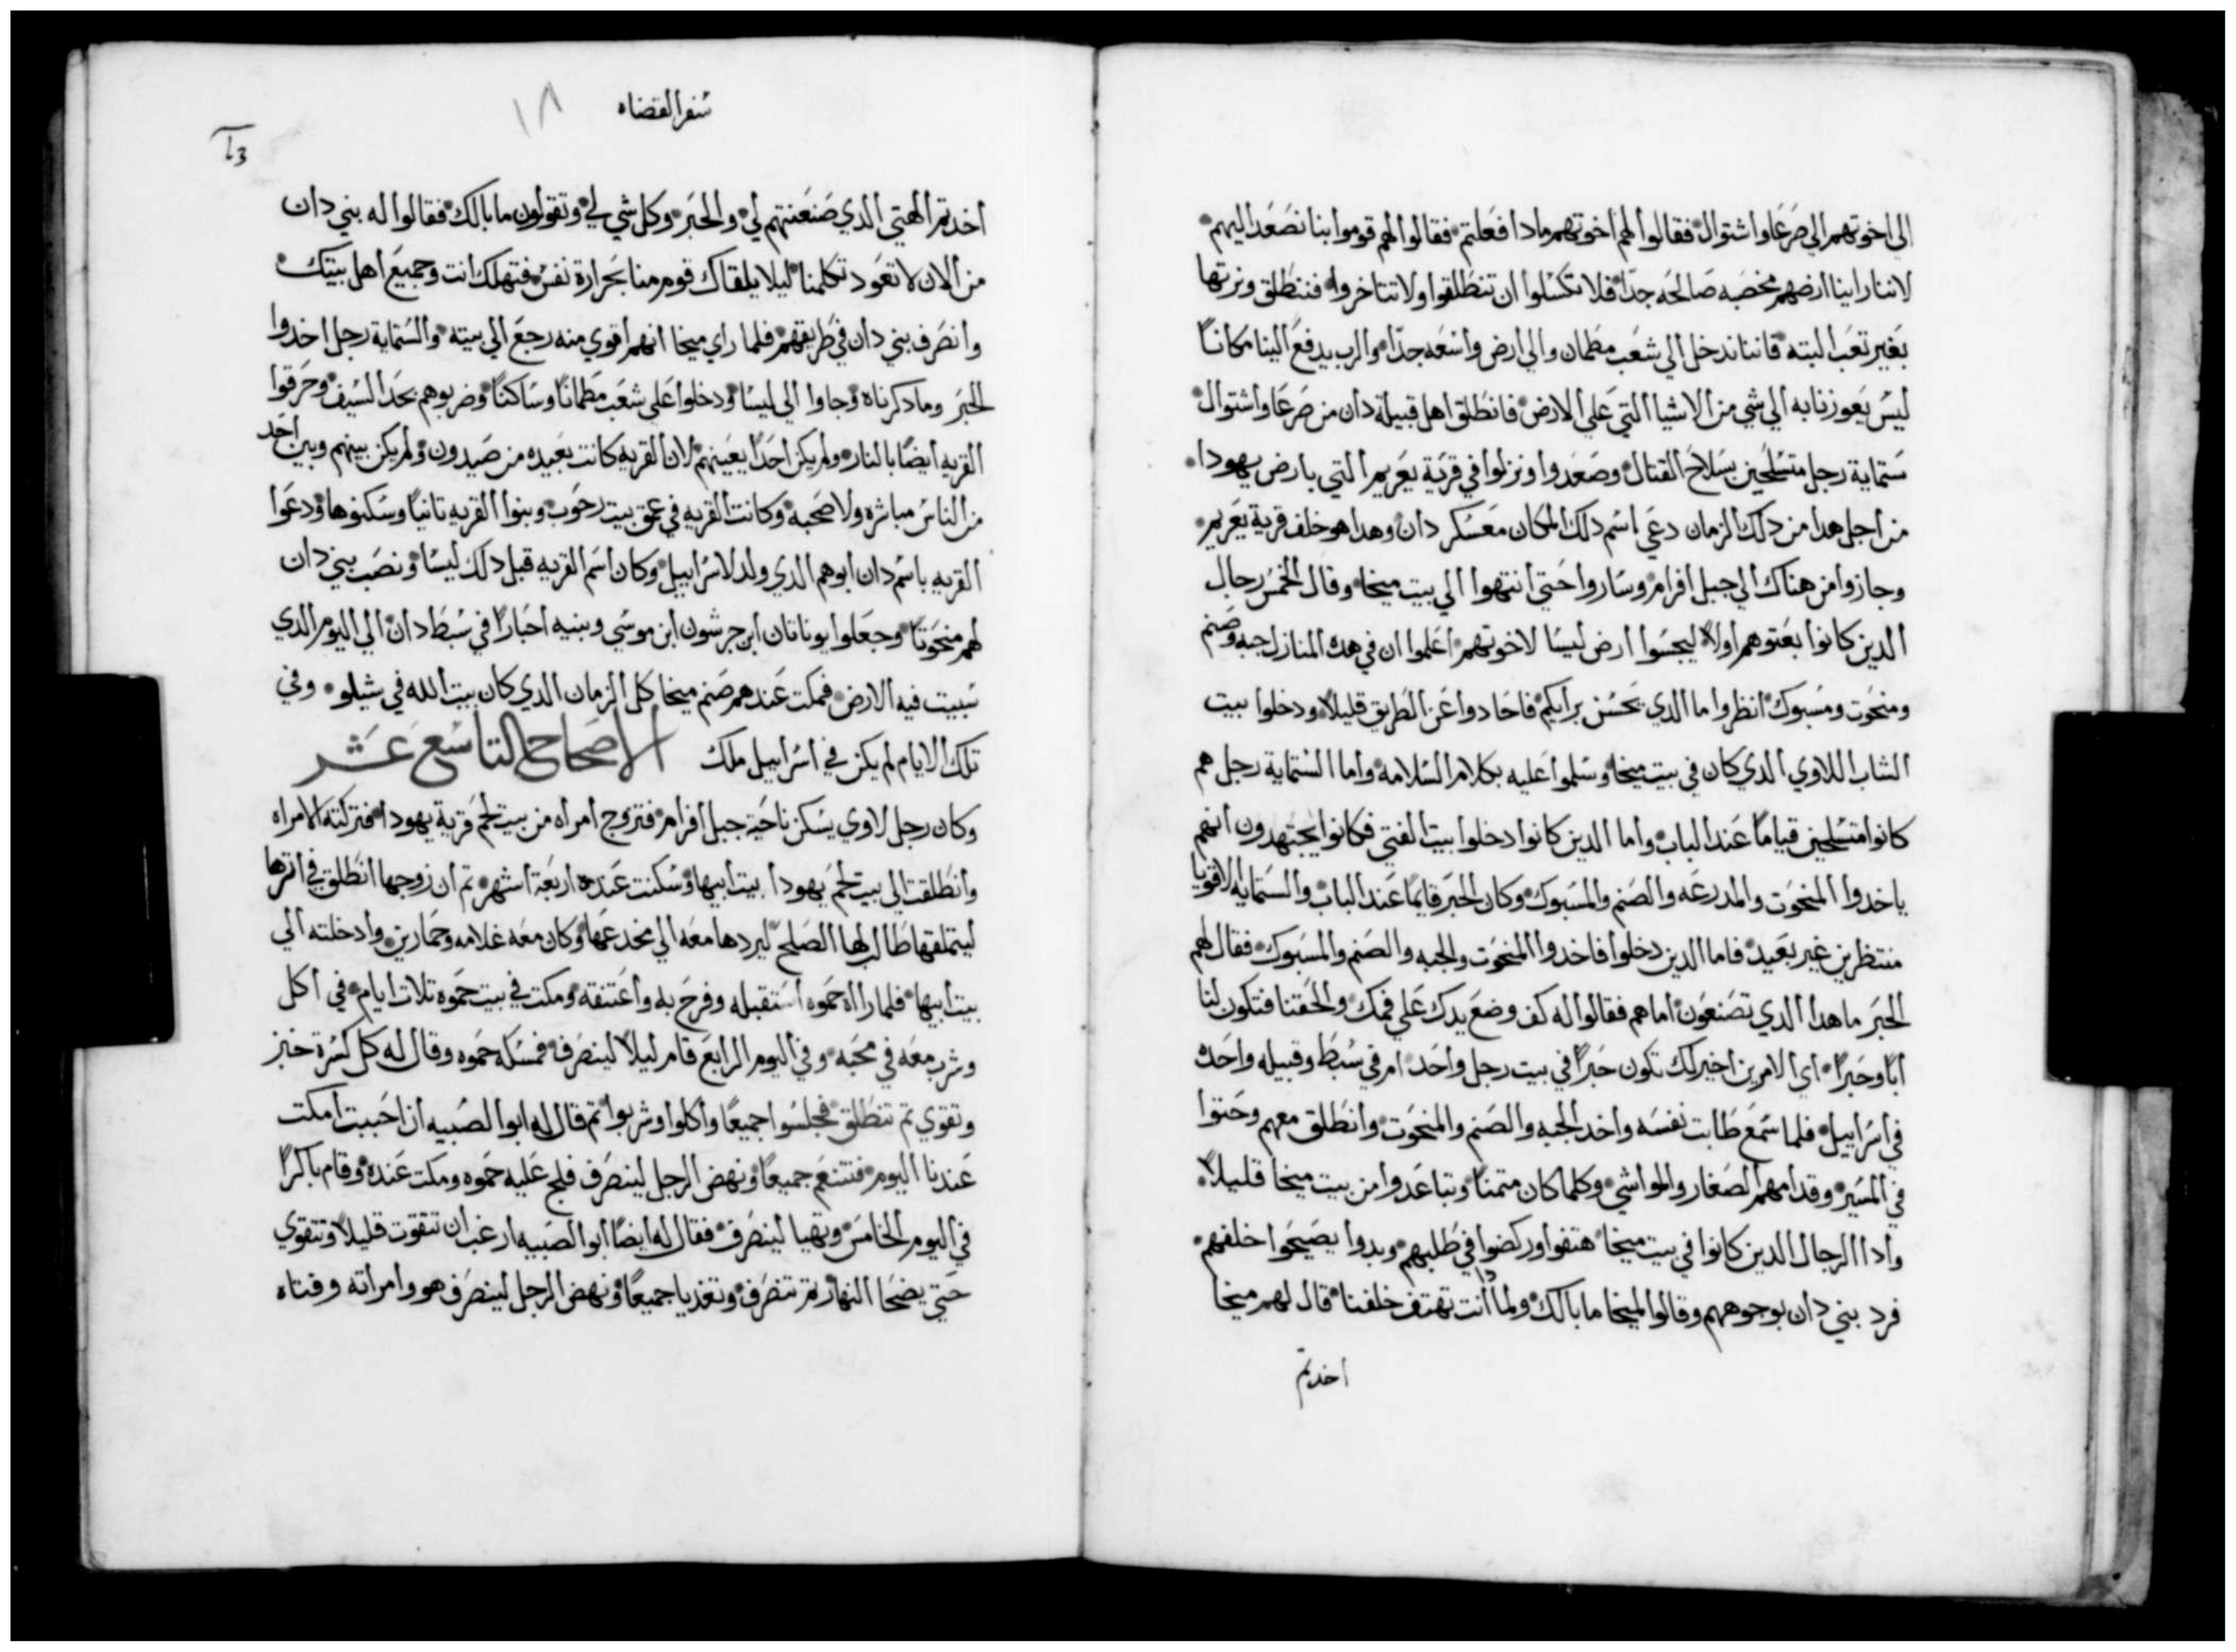 الى اخوتهم الي صرعا واشتوال فقالوا لهم اخوتهم مادا فعلتم فقالوا لهم قوموا بنا نصعد اليهم
لاننا راينا ارضهم مخصبه صالحه جدا فلا تكسلوا ان تنطلقوا ولا تتاخروا فننطلق ونرتها
بغير تعب البته فاننا ندخل الي شعب مطمان والي ارض واسعه جدا والرب يدفع الينا مكانا
ليس يعوزنا به الي شي من الاشيا التي علي الارض فانطلق اهل قبيلة دان من صرعا واشتوال
ستماية رجل متسلحين بسلاح القتال وصعدوا ونزلوا في قرية يعريم التي بارض يهودا
من اجل هدا من دلك الزمان دعي اسم دلك المكان معسكر دان وهدا هو خلف قرية يعريم
وجازوا من هناك الي جبل افرام وساروا حتي انتهوا الي بيت ميخا وقال الخمس رجال
الدين كانوا بعتوهم اولا ليجسوا ارض ليسا لاخوتهم اعلموا ان في هده المنازل جبه وصنم
ومنحوت ومسبوك انظروا ما الدي يحسن برايكم فاحادوا عن الطريق قليلا ودخلوا بيت
الشاب اللاوي الدي كان في بيت ميخا وسلموا عليه بكلام السلامه واما الستماية رجل هم
كانوا متسلحين قياما عند الباب واما الدين كانوا دخلوا بيت الفتي فكانوا يجتهدون انهم
ياخدوا المنحوت والمدرعه والصنم والمسبوك وكان الحبر قايما عند الباب والستمايه الاقويا
منتظرين غير بعيد فاما الدين دخلوا فاخدوا المنحوت والجبه والصنم والمسبوك فقال لهم
الحبر ما هدا الدي تصنعون اما هم فقالوا له كف وضع يدك علي فمك والحقنا فتكون لنا
ابا وحبرا اي الامرين اخير لك تكون حبرا في بيت رجل واحد ام في سبط وقبيله واحده
في اسراييل فلما سمع طابت نفسه واخد الجبه والصنم والمنحوت وانطلق معهم وحتوا
في المسير وقدامهم الصغار والمواشي وكلما كان متمنا وتباعدوا من بيت ميخا قليلا
وادا الرجال الدين كانوا في بيت ميخا هتفوا وركضوا في طلبهم وبدوا يصيحوا خلفهم
فرد بني دان بوجوههم وقالوا لميخا ما بالك ولمادا انت تهتف خلفنا قال لهم ميخا
اخدتم
سفر القضاه
١٨
اخدتم الهتي الدي صنعتهم لي والحبر وكل شي لي وتقولون ما بالك فقالوا له بني دان
من الان لا تعود تكلمنا ليلا يلقاك قوم منا بحرارة نفس فتهلك انت وجميع اهل بيتك
وانصرف بني دان في طريقهم فلما راي ميخا انهم اقوي منه رجع الي بيته والستماية رجل اخدوا
الحبر وما دكرناه وجاوا الي ليسا ودخلوا علي شعب مطمانا وساكنا وضربوهم بحد السيف وحرقوا
القريه ايضا بالنار ولم يكن احدا يعينهم لان القريه كانت بعيده من صيدون ولم يكن بينهم وبين احد
من الناس مباشره ولا صحبه وكانت القريه في عمق بيت رحوب وبنوا القريه تانيا وسكنوها ودعوا
القريه باسم دان ابوهم الدي ولد لاسراييل وكان اسم القريه قبل دلك ليسا ونصب بني دان
لهم منحوتا وجعلوا يوناتان ابن جرشون ابن موسي وبنيه احبارا في سبط دان الي اليوم الدي
سبيت فيه الارض فمكت عندهم صنم ميخا كل الزمان الدي كان بيت الله في شيلو وفي
تلك الايام لم يكن في اسراييل ملك الاصحاح التاسع عشر
وكان رجل لاوي يسكن ناحية جبل افرام فتزوج امراه من بيت لحم قرية يهودا فتركته الامراه
وانطلقت الي بيت لحم يهودا بيت ابيها وسكنت عنده اربعة اشهر تم ان زوجها انطلق في اترها
ليتملقها طالب لها الصلح ليردها معه الي مخدعها وكان معه غلامه وحمارين وادخلته الي
بيت ابيها فلما راه حموه استقبله وفرح به واعتنقه ومكت في بيت حموه تلات ايام في اكل
وشرب معه في محبه وفي اليوم الرابع قام ليلا لينصرف فمسكه حموه وقال له كل كسرة خبز
وتقوي تم تنطلق فجلسوا جميعا واكلوا وشربوا تم قال له ابوا الصبيه ان احببت امكت
عندنا اليوم فنتنعم جميعا ونهض الرجل لينصرف فلج عليه حموه ومكت عنده وقام باكرا
في اليوم الخامس وتهيا لينصرف فقال له ايضا ابوا الصبيه ارغب ان تتقوت قليلا وتتقوي
حتي يضحا النهار تم تنصرف وتغديا جميعا ونهض الرجل لينصرف هو وامراته وفتاه